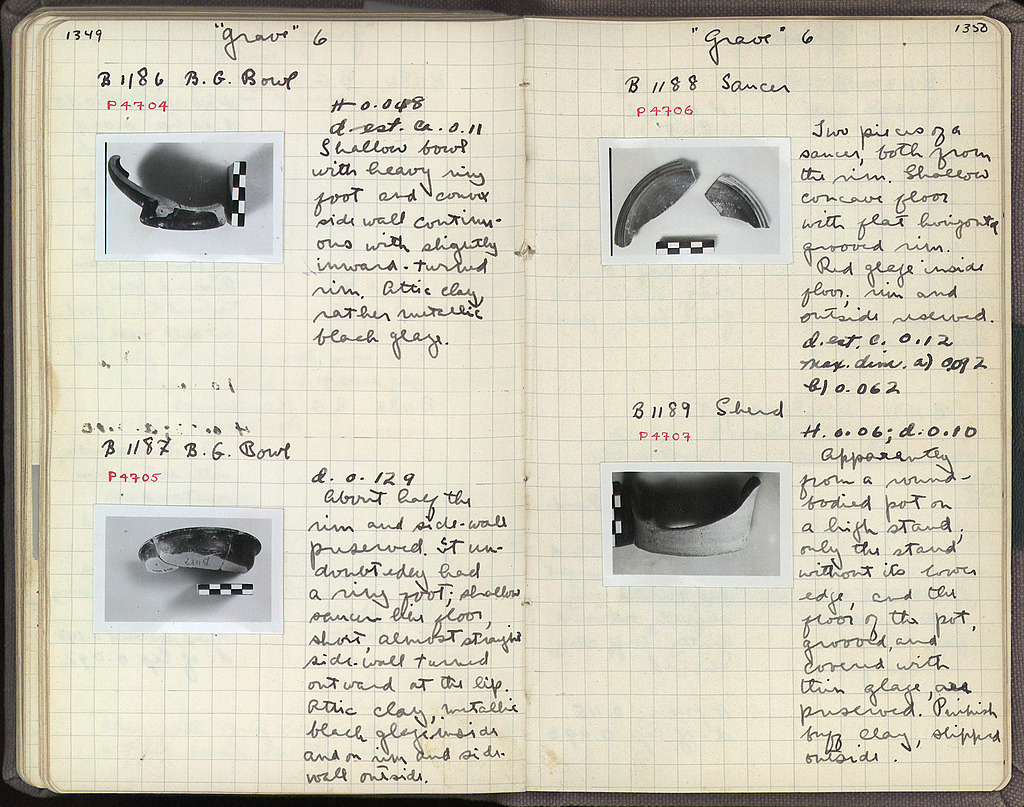 1349
"Grave" 6
B 1186 B.G. Bowl
P4704
H 0.048
d. est. ca. 0.11
Shallow bowl
with heavy ring
foot and convex
side wall continu-
ous with slightly
inward-turned
rim. Attic clay,
rather metallic
black glaze.
B 1187 B.G. Bowl
P4705
d. 0.129
About half the
rim and side-wall
preserved. It un-
doubtedly had
a ring foot; shallow
saucer like floor,
short, almost straight
side-wall turned
outward at the lip.
Attic clay, metallic
black glaze inside
and on rim and side-
wall outside.
1350
"Grave" 6
B 1188 Saucer
P4706
Two pieces of a
saucer, both from
the rim. Shallow
concave floor
with flat horizontal
grooved rim.
Red glaze inside
floor; rim and
outside reserved.
d. est. c. 0.12
max. dim. a) 0.092
b) 0.062
B 1189 Sherd
P4707
H. 0.06; d. 0.10
Apparently
from a round-
bodied pot on
a high stand;
only the stand
without its lower
edge, and the
floor of the pot,
grooved, and
covered with
thin glaze, are
preserved. Pinkish
buff clay, slipped
outside.